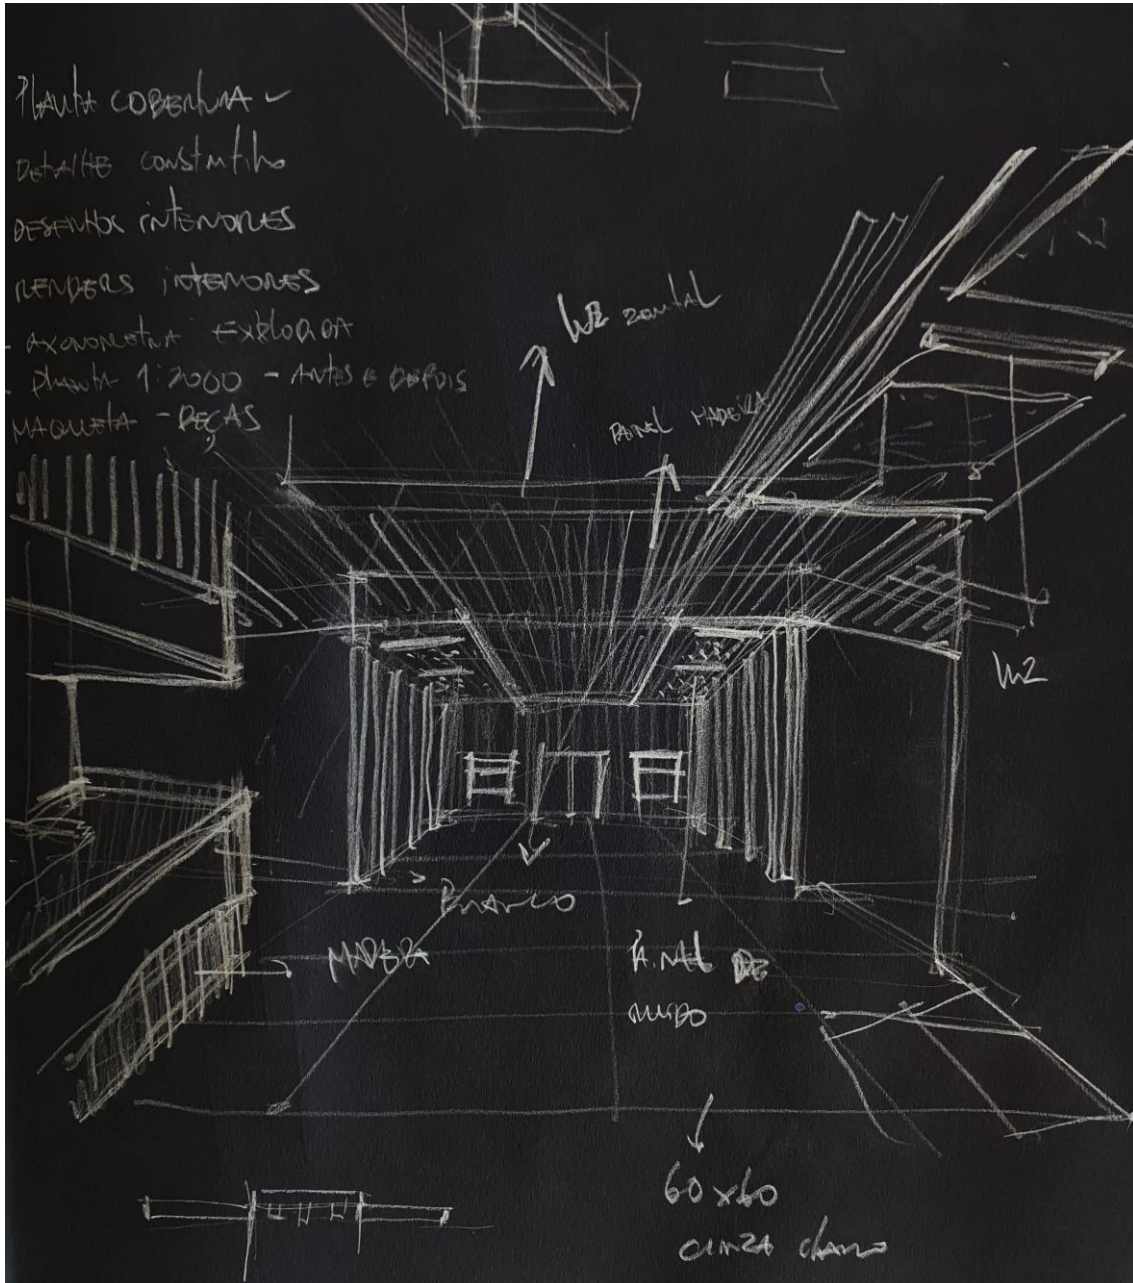 PLANTA COBERTURA ✓
DETALHE construtivo
DESENHOS INTERIORES
RENDERS INTERIORES
- AXONOMETRIA EXPLODIDA
- planta 1:2000 - ANTES E DEPOIS
MAQUETA - PEÇAS
LUZ zenital
PAINEL MADEIRA
LUZ
BRANCO
MADEIRA
PAINEL DE
60x60
CINZA claro